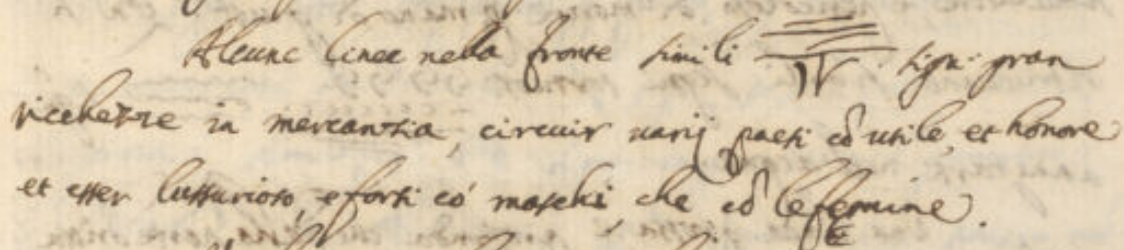 Alcune linee nella fronte simili sign: gran
ricchezze in mercanzia, circuir varij paesi cō utile, et honore
et esser lussurioso, e forsi cō maschi, che cō le femine.